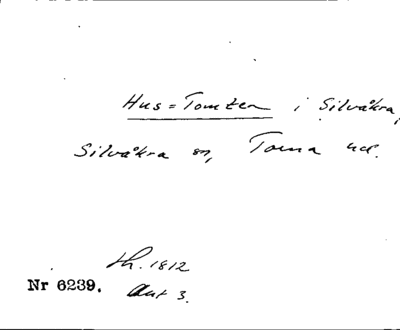 Hus=Tomten i Silvåkra,
Silvåkra sn, Torna hd.
th. 1812
Nr 6239. Akt 3.